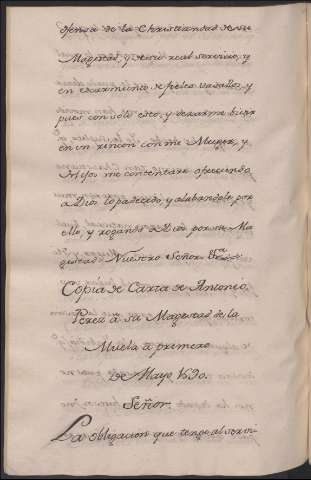 ofensa de la Christiandad de su
Magestad, y de su real servicio, y
en escarmiento de fieles vasallos, y
pues con solo esto, y dexarme bivir
en un rincon con mi Muger, y
Hijos me contentaré ofreciendo
a Dios lo padecido, y alabandole por
ello, y rogando a Dios por su Ma
gestad Nuestro Señor &ra
Copia de Carta de Antonio
Perez á su Magestad de la
Muela á primero
de Mayo 1590.
Señor.
La obligacion que tengo al servi-